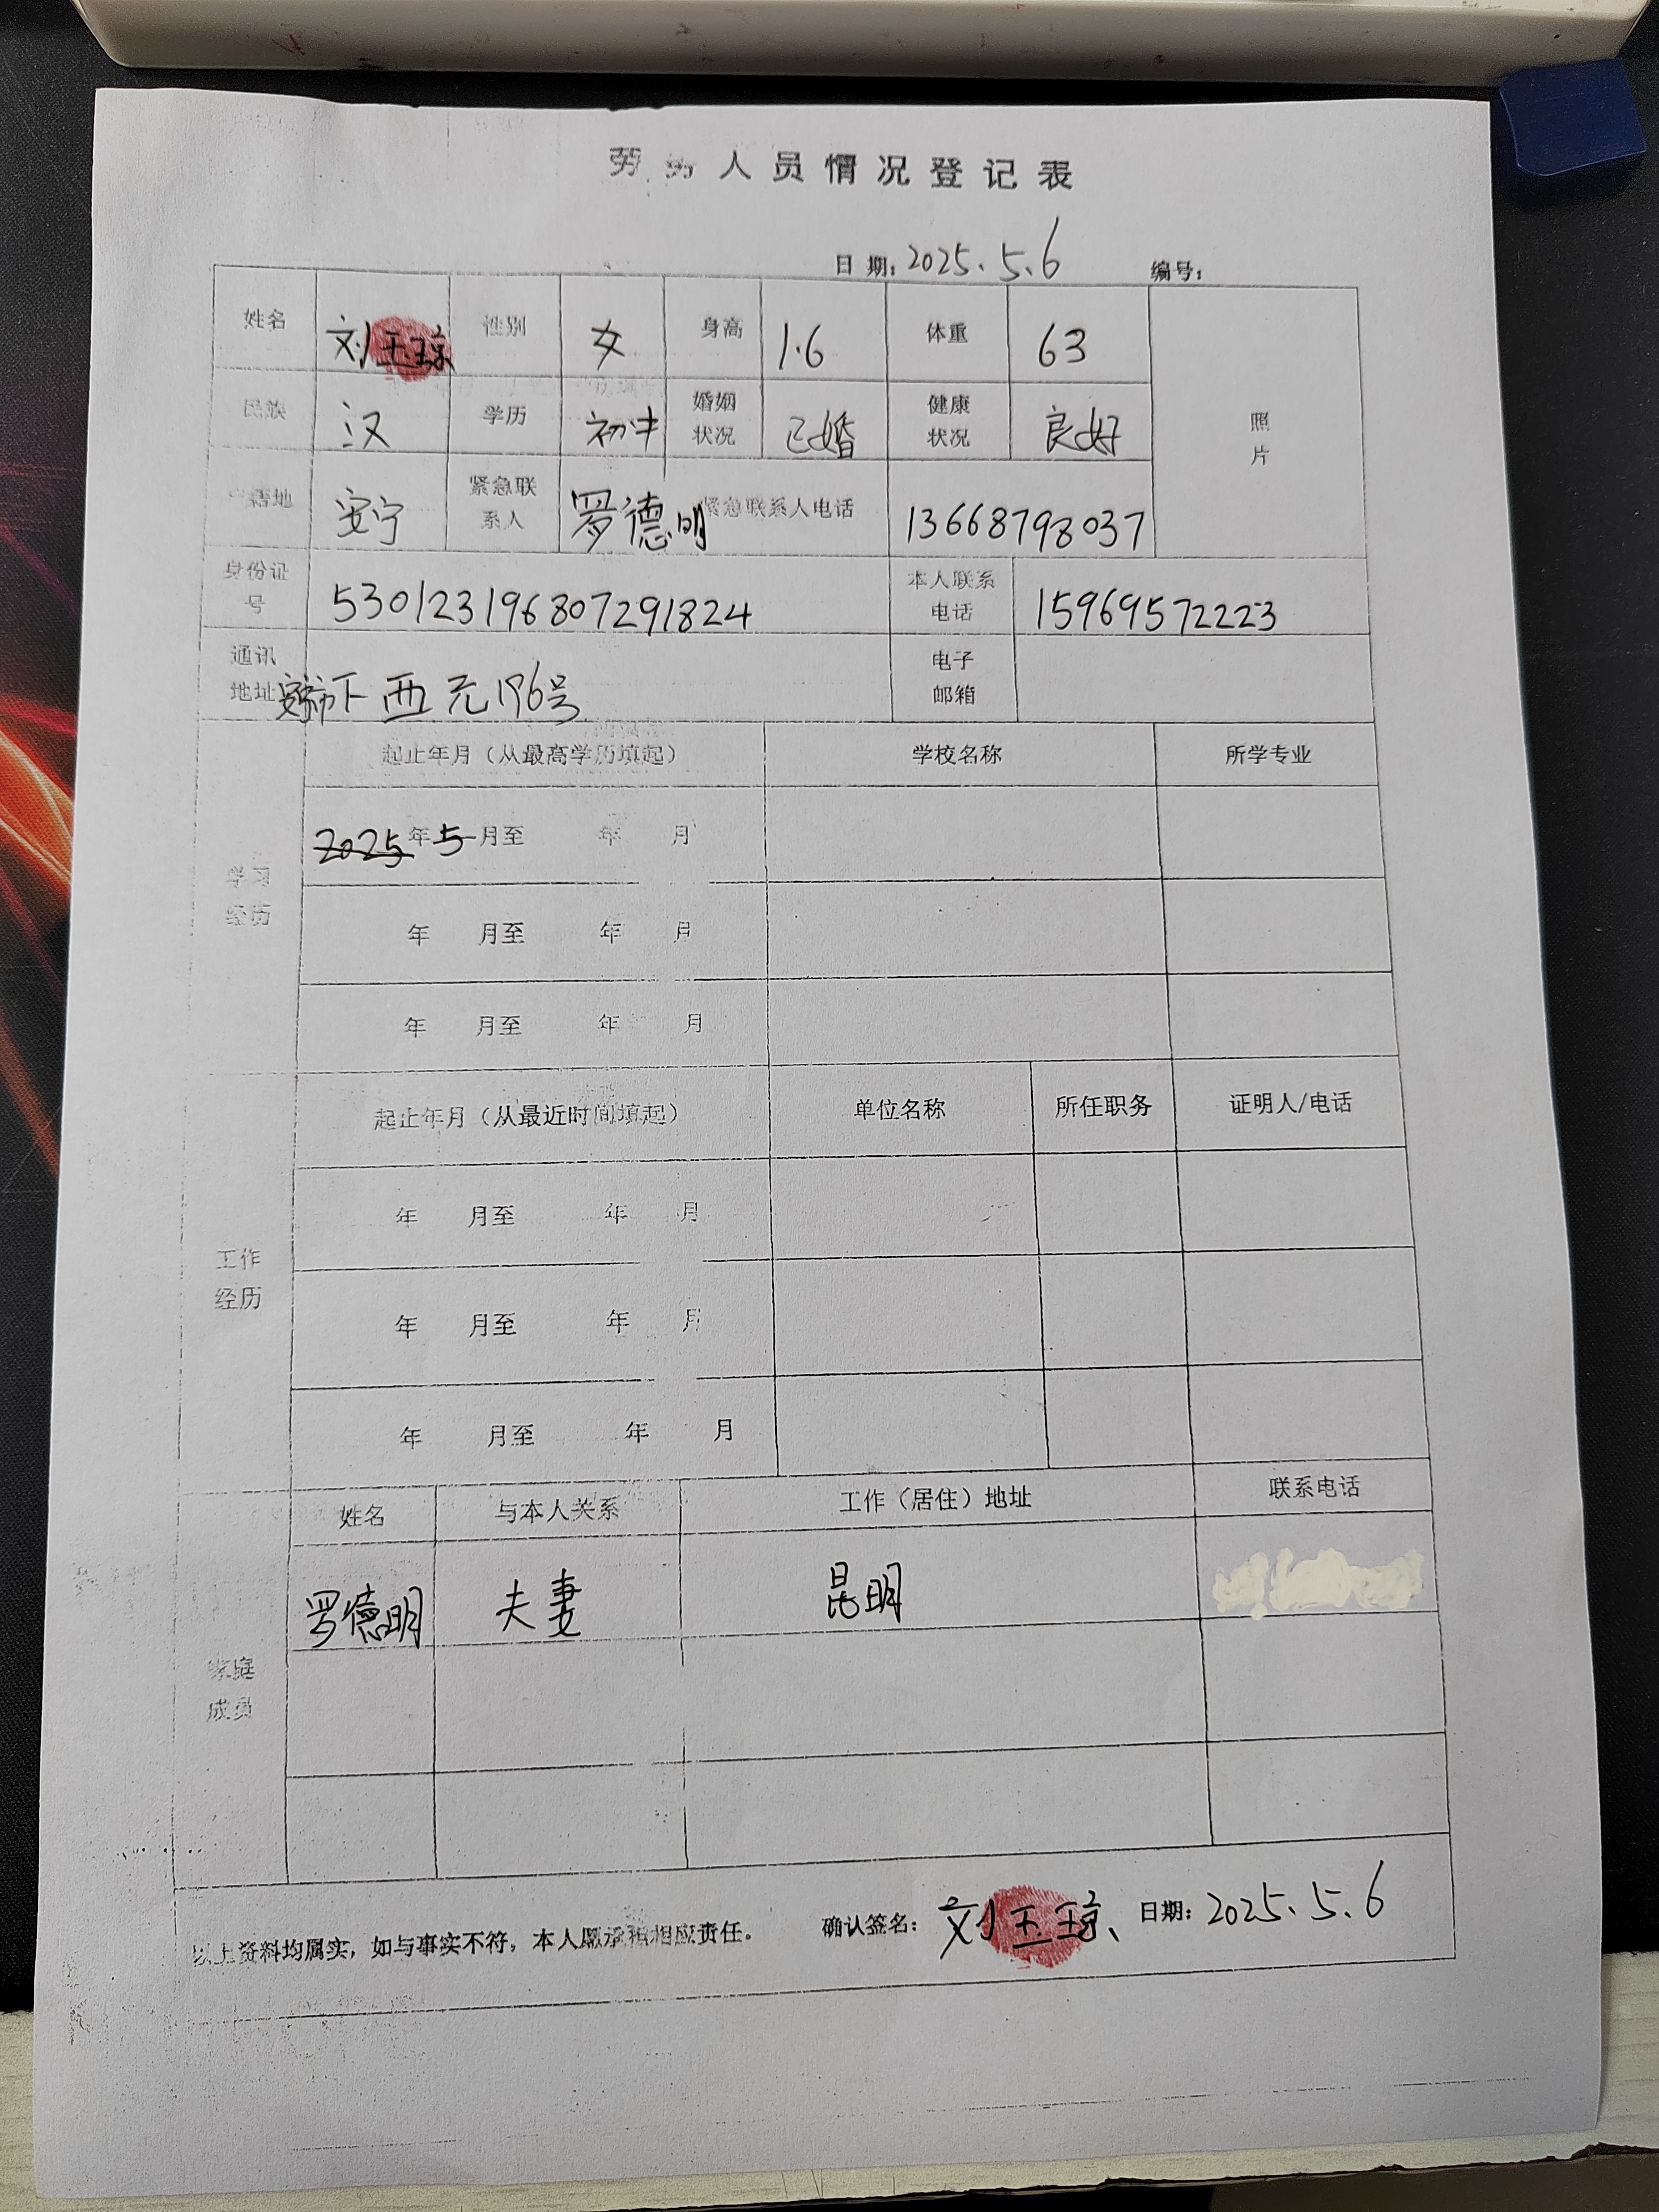 劳务人员情况登记表
日期：2025.5.6 编号：
姓名 刘玉琼 性别 女 身高 1.6 体重 63
民族 汉 学历 初中 婚姻状况 已婚 健康状况 良好 照片
籍地 安宁 紧急联系人 罗德明 紧急联系人电话 13668798037
身份证号 530123196807291824 本人联系电话 15969572223
通讯地址 下西元196号 电子邮箱
起止年月（从最高学历填起） 学校名称 所学专业
学习经历
2025年5月至 年 月
年 月至 年 月
年 月至 年 月
起止年月（从最近时间填起） 单位名称 所任职务 证明人/电话
工作经历
年 月至 年 月
年 月至 年 月
年 月至 年 月
姓名 与本人关系 工作（居住）地址 联系电话
家庭成员
罗德明 夫妻 昆明
以上资料均属实，如与事实不符，本人愿承担相应责任。 确认签名：刘玉琼、 日期：2025.5.6